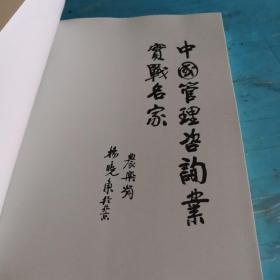 中國管理咨詢業
實戰名家
農興崗
楊曉東於北京